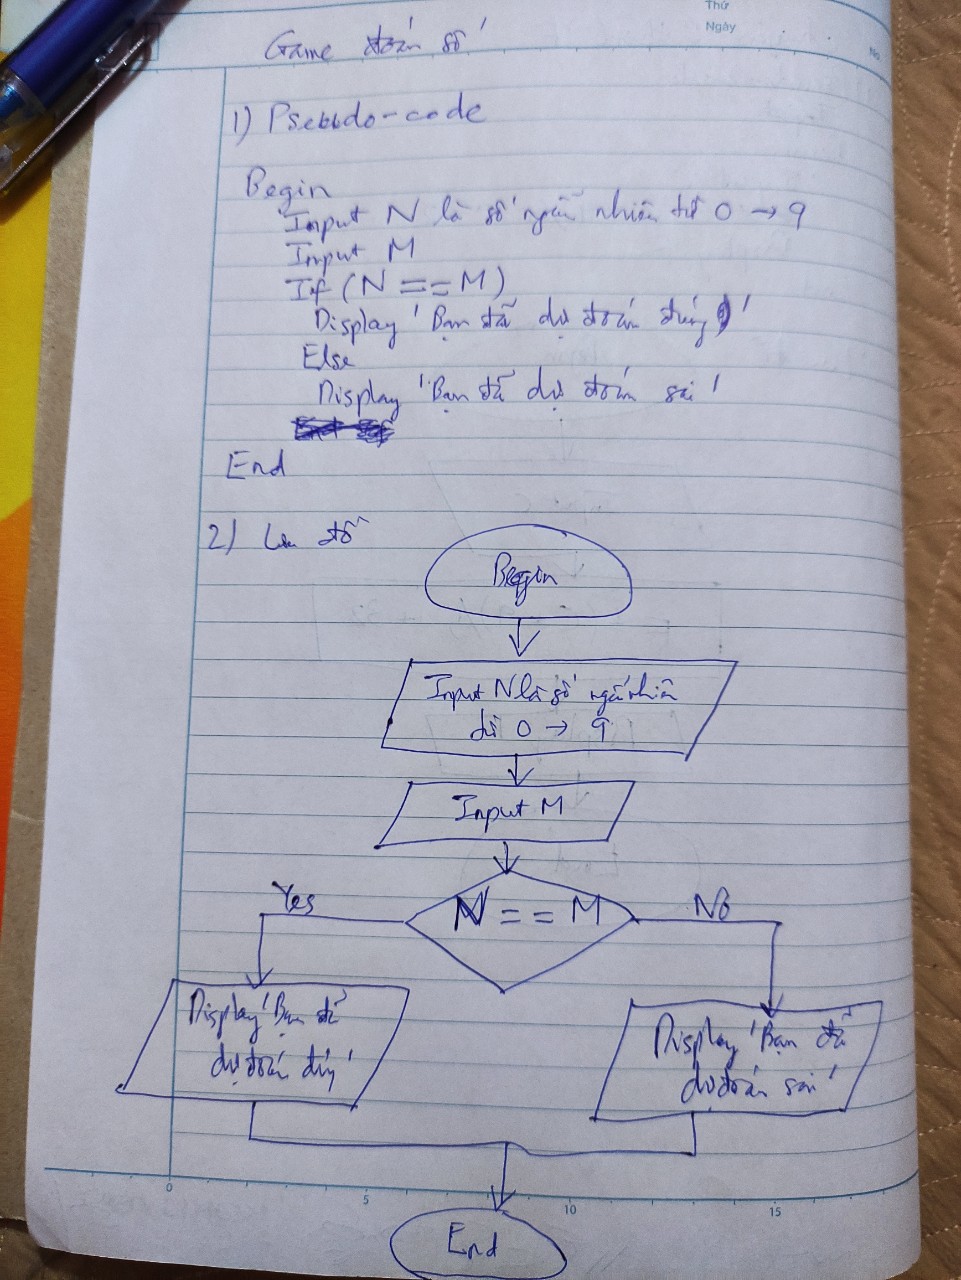 Thứ
Ngày
No.
Game đoán số
1) Pseudo-code
Begin
Input N là số ngẫu nhiên từ 0 → 9
Input M
If (N == M)
Display 'Bạn đã dự đoán đúng'
Else
Display 'Bạn đã dự đoán sai'
End
2) Lưu đồ
Begin
Input N là số ngẫu nhiên
từ 0 → 9
Input M
N == M
Yes
No
Display 'Bạn đã
dự đoán đúng'
Display 'Bạn đã
dự đoán sai'
0 5 10 15
End